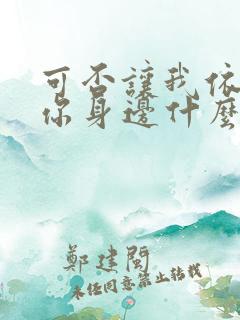 可否讓我依
你身邊什麼
鄭建闽
未经同意禁止转载